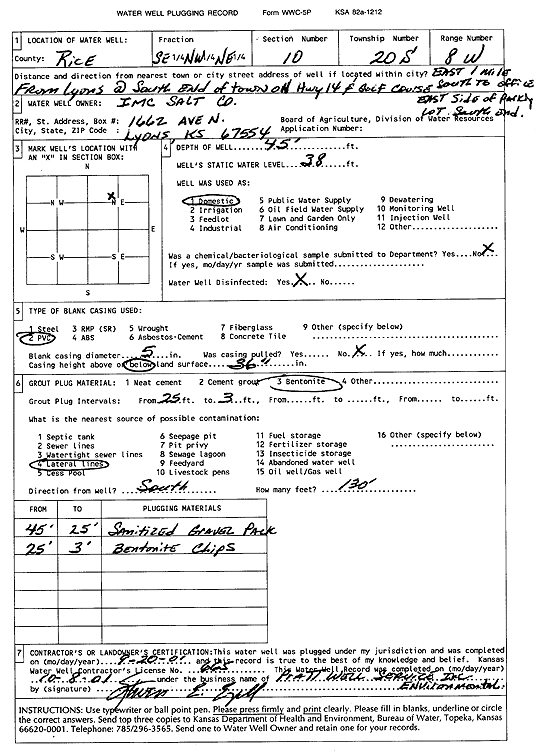 WATER WELL PLUGGING RECORD Form WWC-5P KSA 82a-1212
1 LOCATION OF WATER WELL: Fraction Section Number Township Number Range Number
County: RICE SE 1/4 NW 1/4 NE 1/4 10 20 S 8 W
Distance and direction from nearest town or city street address of well if located within city? EAST 1 MILE
FROM LYONS @ SOUTH END OF TOWN ON HWY 14 & GOLF COURSE SOUTH TO OFFICE
2 WATER WELL OWNER: IMC SALT CO. EAST SIDE OF PARKING
RR#, St. Address, Box #: 1662 AVE N. Board of Agriculture, Division of Water Resources LOT. SOUTH END.
City, State, ZIP Code : LYONS, KS 67554 Application Number:
3 MARK WELL'S LOCATION WITH AN "X" IN SECTION BOX:
N
X
N W N E
W E
S W S E
S
4 DEPTH OF WELL.....45'.....ft.
WELL'S STATIC WATER LEVEL.....38.....ft.
WELL WAS USED AS:
1 Domestic 5 Public Water Supply 9 Dewatering
2 Irrigation 6 Oil Field Water Supply 10 Monitoring Well
3 Feedlot 7 Lawn and Garden Only 11 Injection Well
4 Industrial 8 Air Conditioning 12 Other
Was a chemical/bacteriological sample submitted to Department? Yes....No..X
If yes, mo/day/yr sample was submitted
Water Well Disinfected: Yes.X.. No.....
5 TYPE OF BLANK CASING USED:
1 Steel 3 RMP (SR) 5 Wrought 7 Fiberglass 9 Other (specify below)
2 PVC 4 ABS 6 Asbestos-Cement 8 Concrete Tile
Blank casing diameter....5.....in. Was casing pulled? Yes...... No.X... If yes, how much
Casing height above or below land surface.....36"....in.
6 GROUT PLUG MATERIAL: 1 Neat cement 2 Cement grout 3 Bentonite 4 Other
Grout Plug Intervals: From.25.ft. to..3..ft., From.....ft. to.....ft., From..... to.....ft.
What is the nearest source of possible contamination:
1 Septic tank 6 Seepage pit 11 Fuel storage 16 Other (specify below)
2 Sewer lines 7 Pit privy 12 Fertilizer storage
3 Watertight sewer lines 8 Sewage lagoon 13 Insecticide storage
4 Lateral lines 9 Feedyard 14 Abandoned water well
5 Cess Pool 10 Livestock pens 15 Oil well/Gas well
Direction from well? South How many feet? 130'
FROM TO PLUGGING MATERIALS
45' 25' SANITIZED GRAVEL PACK
25' 3' BENTONITE CHIPS
7 CONTRACTOR'S OR LANDOWNER'S CERTIFICATION: This water well was plugged under my jurisdiction and was completed
on (mo/day/year) and this record is true to the best of my knowledge and belief. Kansas
Water Well Contractor's License No. This Water Well Record was completed on (mo/day/year)
10-8-01 under the business name of PRATT WELL SERVICE INC.
by (signature) ENVIRONMENTAL
INSTRUCTIONS: Use typewriter or ball point pen. Please press firmly and print clearly. Please fill in blanks, underline or circle
the correct answers. Send top three copies to Kansas Department of Health and Environment, Bureau of Water, Topeka, Kansas
66620-0001. Telephone: 785/296-3565. Send one to Water Well Owner and retain one for your records.